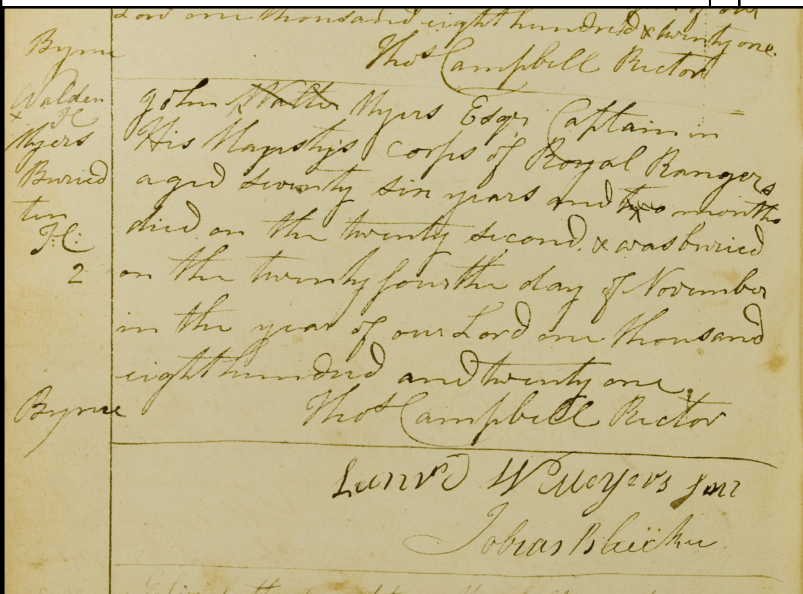 Lord one thousand eight hundred & twenty one.
Byrne
Thos Campbell Rector
Walden
John Walter Myers Esqr Captain in
Myers
His Majestys corps of Royal Rangers
Buried
aged seventy six years and two months
ten
died on the twenty second & was buried
2
on the twenty fourth day of November
in the year of our Lord one thousand
eight hundred and twenty one.
Byrne
Thos Campbell Rector
W Meyers
Tobias Bleicker